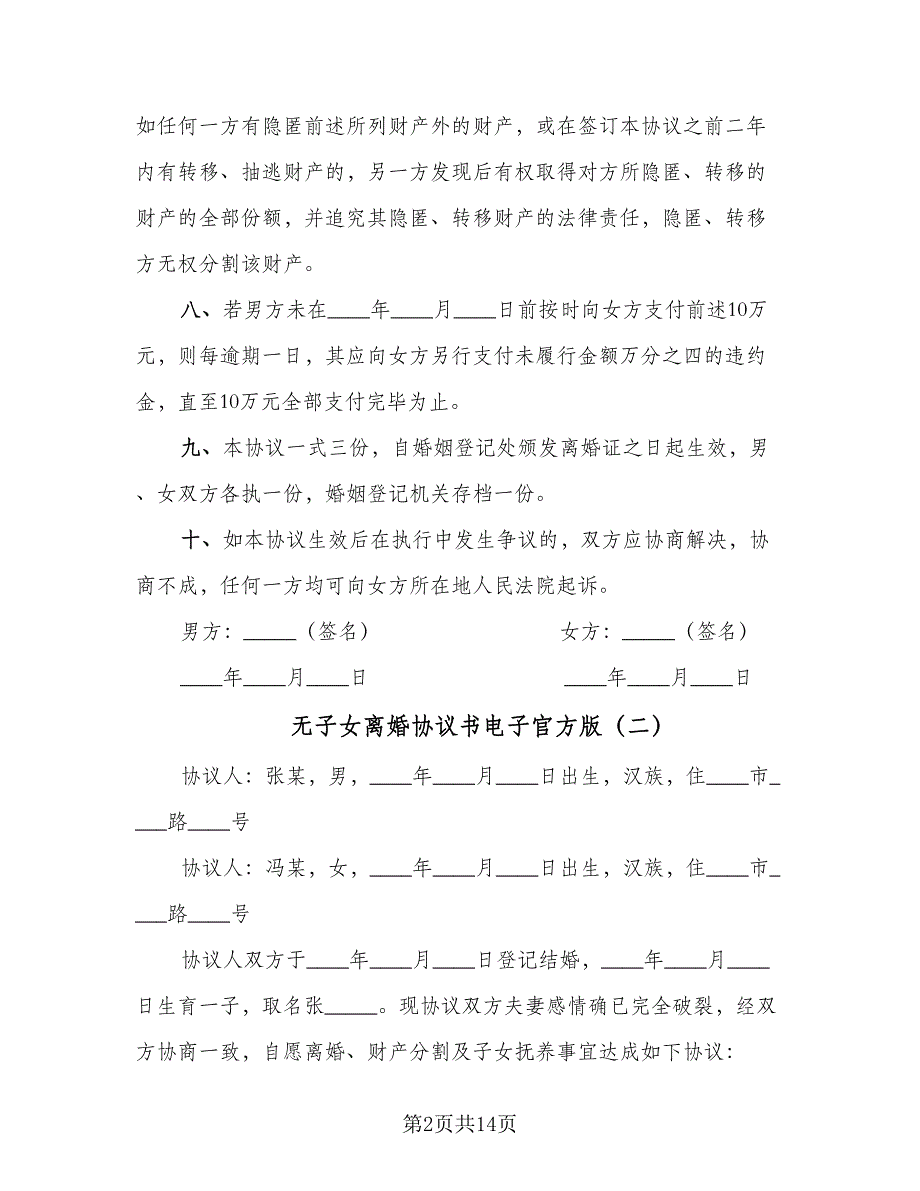 如任何一方有隐匿前述所列财产外的财产，或在签订本协议之前二年
内有转移、抽逃财产的，另一方发现后有权取得对方所隐匿、转移的
财产的全部份额，并追究其隐匿、转移财产的法律责任，隐匿、转移
方无权分割该财产。
八、若男方未在____年____月____日前按时向女方支付前述10万
元，则每逾期一日，其应向女方另行支付未履行金额万分之四的违约
金，直至10万元全部支付完毕为止。
九、本协议一式三份，自婚姻登记处颁发离婚证之日起生效，男
、女双方各执一份，婚姻登记机关存档一份。
十、如本协议生效后在执行中发生争议的，双方应协商解决，协
商不成，任何一方均可向女方所在地人民法院起诉。
男方：_____（签名） 女方：_____（签名）
____年____月____日 ____年____月____日
无子女离婚协议书电子官方版（二）
协议人：张某，男，____年____月____日出生，汉族，住____市_
___路____号
协议人：冯某，女，____年____月____日出生，汉族，住____市_
___路____号
协议人双方于____年____月____日登记结婚，____年____月____
日生育一子，取名张_____。现协议双方夫妻感情确已完全破裂，经双
方协商一致，自愿离婚、财产分割及子女抚养事宜达成如下协议：
第2页共14页